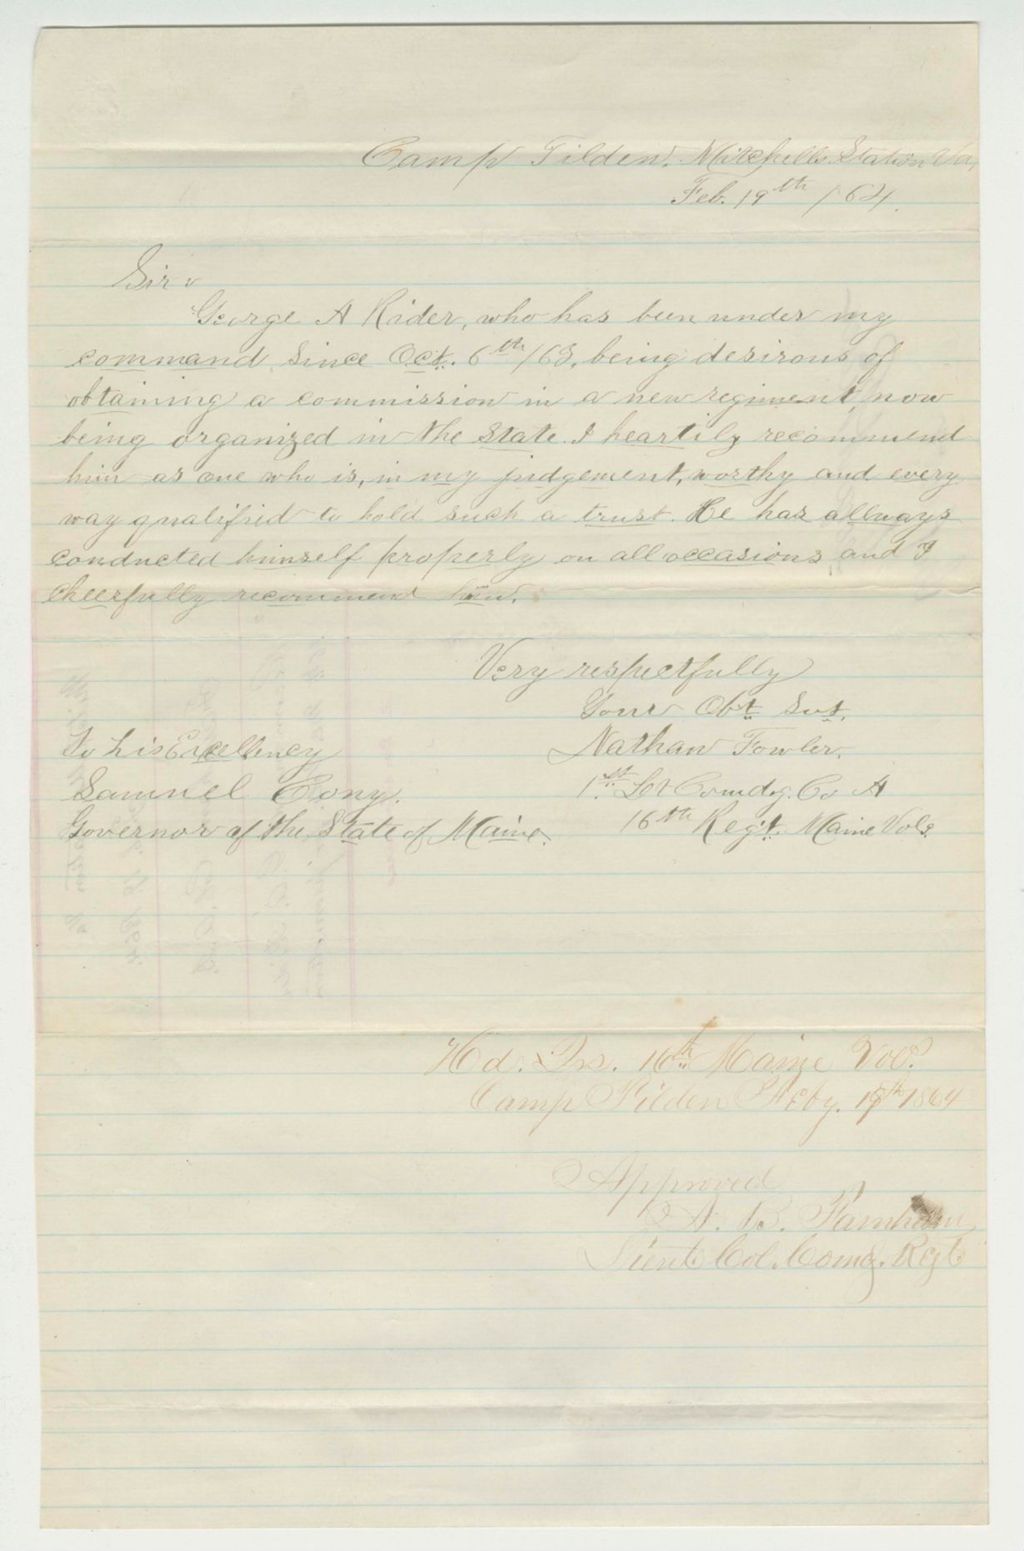 Camp Tilden. Mitchells Station Va,
Feb. 19th /64.
Sir
George A Rider, who has been under my
command, since Oct. 6th /63, being desirous of
obtaining a commission in a new regiment, now
being organized in the State. I heartily recommend
him as one who is, in my judgement, worthy and every
way qualified to hold such a trust. He has allways
conducted himself properly on all occasions and I
cheerfully recommend him.
Very respectfully
Your Obt. Svt.
Nathan Fowler.
1st. Lt Comdg. Co A
16th Regt. Maine Vols.
To his Excellency
Samuel Cony.
Governor of the State of Maine.
Hd. Qrs. 16th Maine Vols.
Camp Tilden Feby. 19th 1864
Approved
A. B. Farnham
Lieut Col. Comg. Regt